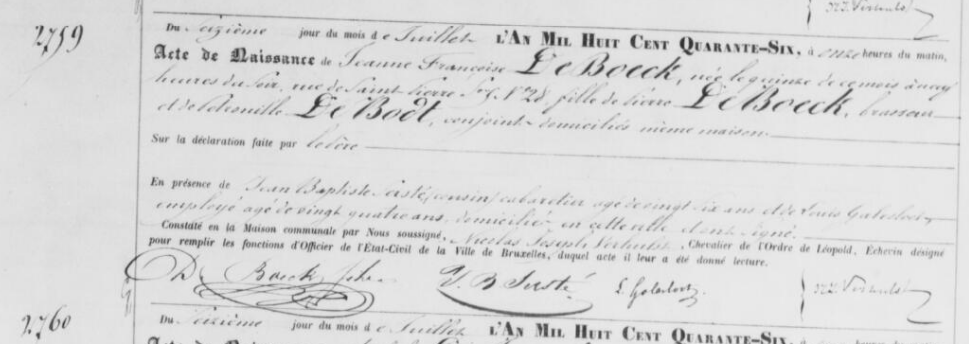 N.J. Verhulst
2759
Du Seizième jour du mois de Juillet L'AN MIL HUIT CENT QUARANTE-SIX, à onze heures du matin,
Acte de Naissance de Jeanne Françoise De Boeck, née le quinze de ce mois à
heures du soir, rue de Saint Pierre N° 28, fille de Pierre De Boeck, brasseur
et de De Bodt, conjoints domiciliés même maison.
Sur la déclaration faite par le père
En présence de Jean Baptiste (cousin) cabaretier agé de vingt six ans et de Louis
employé agé de vingt quatre ans, domiciliés en cette ville et ont signé.
Constaté en la Maison communale par Nous soussigné, Nicolas Joseph Verhulst, Chevalier de l'Ordre de Léopold, Echevin désigné
pour remplir les fonctions d'Officier de l'Etat-Civil de la Ville de Bruxelles, duquel acte il leur a été donné lecture.
De Boeck J.B. L. N.J. Verhulst
2760
Du Seizième jour du mois de Juillet L'AN MIL HUIT CENT QUARANTE-SIX, à heures du matin,
Acte de Naissance de